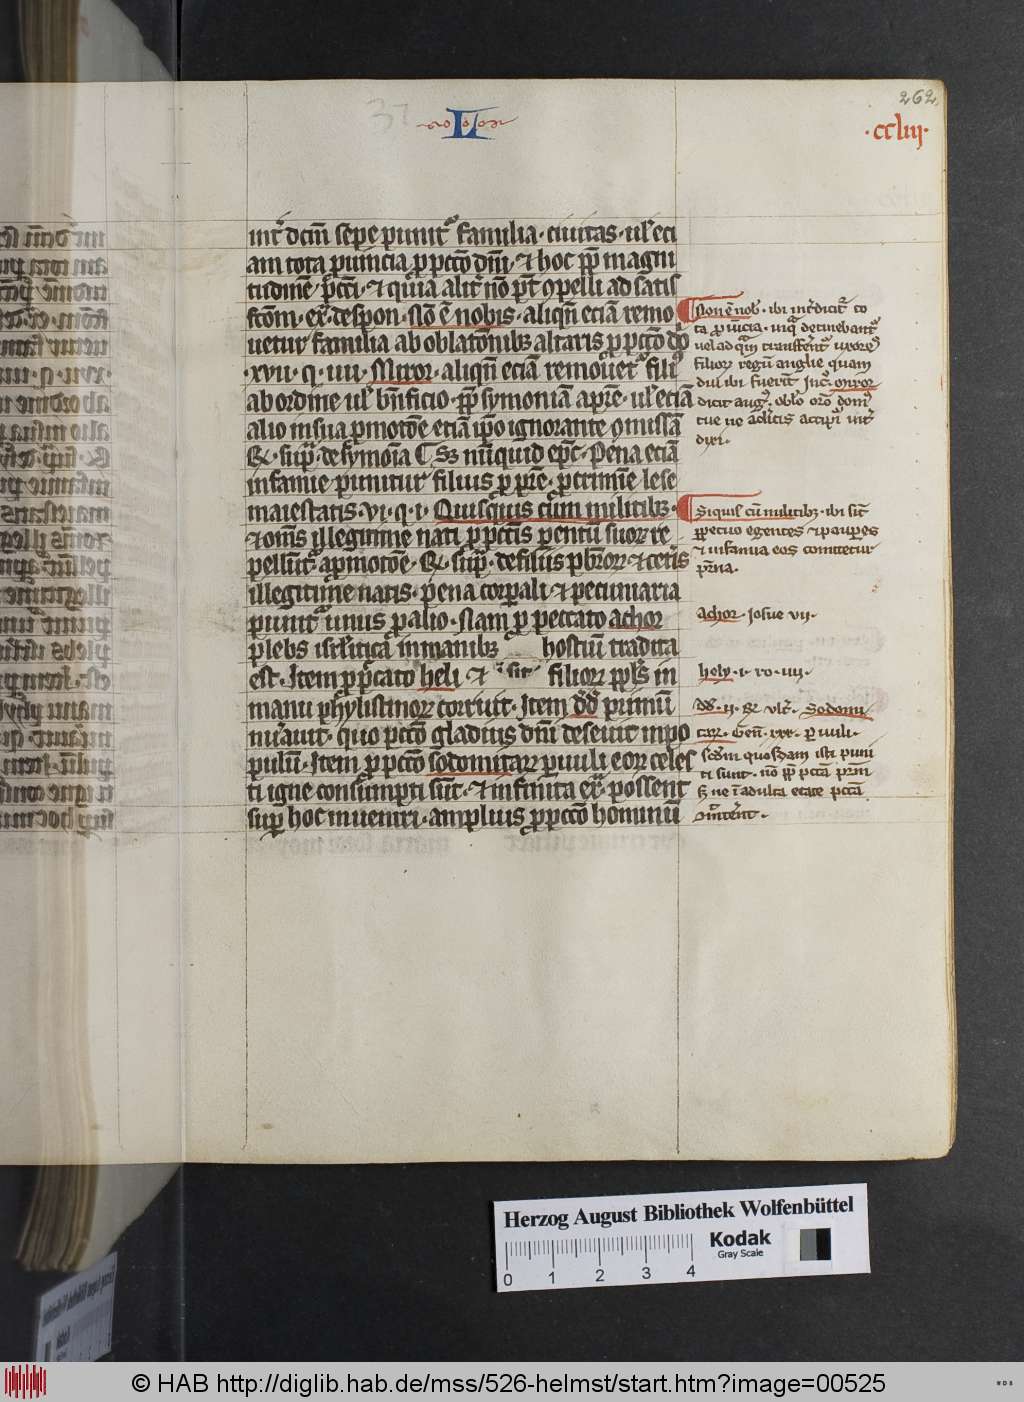 262
·ccliij·
L
int̾ dcm̄ sepe punit᷑ familia · ciuitas · ul̾ eci
am tota ꝓuincia ꝑ pccō dn̄i · ⁊ hoc ꝓp̄ magni
tudinē · pcc̄i · ⁊ quia alit̾ nō pt̄ ꝯpelli ad satis
fcōm · ex̄ · de spon · Nō ē nobis · aliqn̄ eciā remo
uetur familia ab oblatōnibꝫ altaris ꝓ pccō dō
·xvii · q · iiii · Miror · aliqn̄ eciā remouet᷑ filiꝰ
ab ordine ul̾ bn̄ficio · ꝓp̄ symoniā apr̄e · ul̾ eciā
alio in sua ꝓmotōe eciā ip̄o ignorante ꝯmissā
ex̄ · sup̄ · de symoīa Sꝫ nūquid ep̄c · Pena eciā
infamie punitur filius ꝓ pr̄e · ꝓ crimīe lese
maiestatis · vi · q · i · Quisquis cum militibꝫ ·
⁊ om̄s illegitime nati ꝓ pcc̄tis parentū suoꝝ re
pellūt᷑ a ꝓmotōe · ex̄ · sup̄ · de filiis pb̄roꝝ · ⁊ cetis
illegitime natis · pena corꝑali ⁊ pecuniaria
punit᷑ unus ꝓ alio · Nam ꝓ peccato achor
plebs isrl̄itica in manibꝫ hostiū tradita
est · Item ꝓ pccato heli · ⁊ filioꝝ ppl̄s in
manu phylistinoꝝ corruit · Item dd̄ primū
nu̾auit · quo pccō gladius dn̄i deseuit in po
pulū · Item ꝓ pccō sodomitaꝝ paruuli eoꝝ celes
ti igne consumpti sūt · ⁊ infinita ex̄ possent
sup̄ hoc inueniri · amplius ꝓ pccō hominū
Non ē nob̾ · ibi int̾dicit᷑ to
ta ꝓuīcia · in qua detinebant᷑
vel ad quam transfert᷑ uxores
filioꝝ regū anglie quam
diu ibi fuerīt Inc̾ · miror
dicit aug᷑ · oblōōes domꝰ
tue ne a clicis accipi int̾
dixi ·
Si quis cū militibꝫ · ibi sīt
ꝑpetuo egentes ⁊ pauꝑes
⁊ infamia eos comitetur
pr̄na ·
Achor · Josue vii ·
hely · i · re · iiii ·
dd̄ · ii · re ult̾ · Sodomi
taꝝ · Gen̄ · xix · paruuli ·
scd̄m quosdam isti puni
ti sunt · nō ꝓp̄ pcc̄a pr̄m
sꝫ ne ī adulta etate pcc̄a
ꝯmitt̾ent ·
Herzog August Bibliothek Wolfenbüttel
Kodak
Gray Scale
0 1 2 3 4
© HAB http://diglib.hab.de/mss/526-helmst/start.htm?image=00525